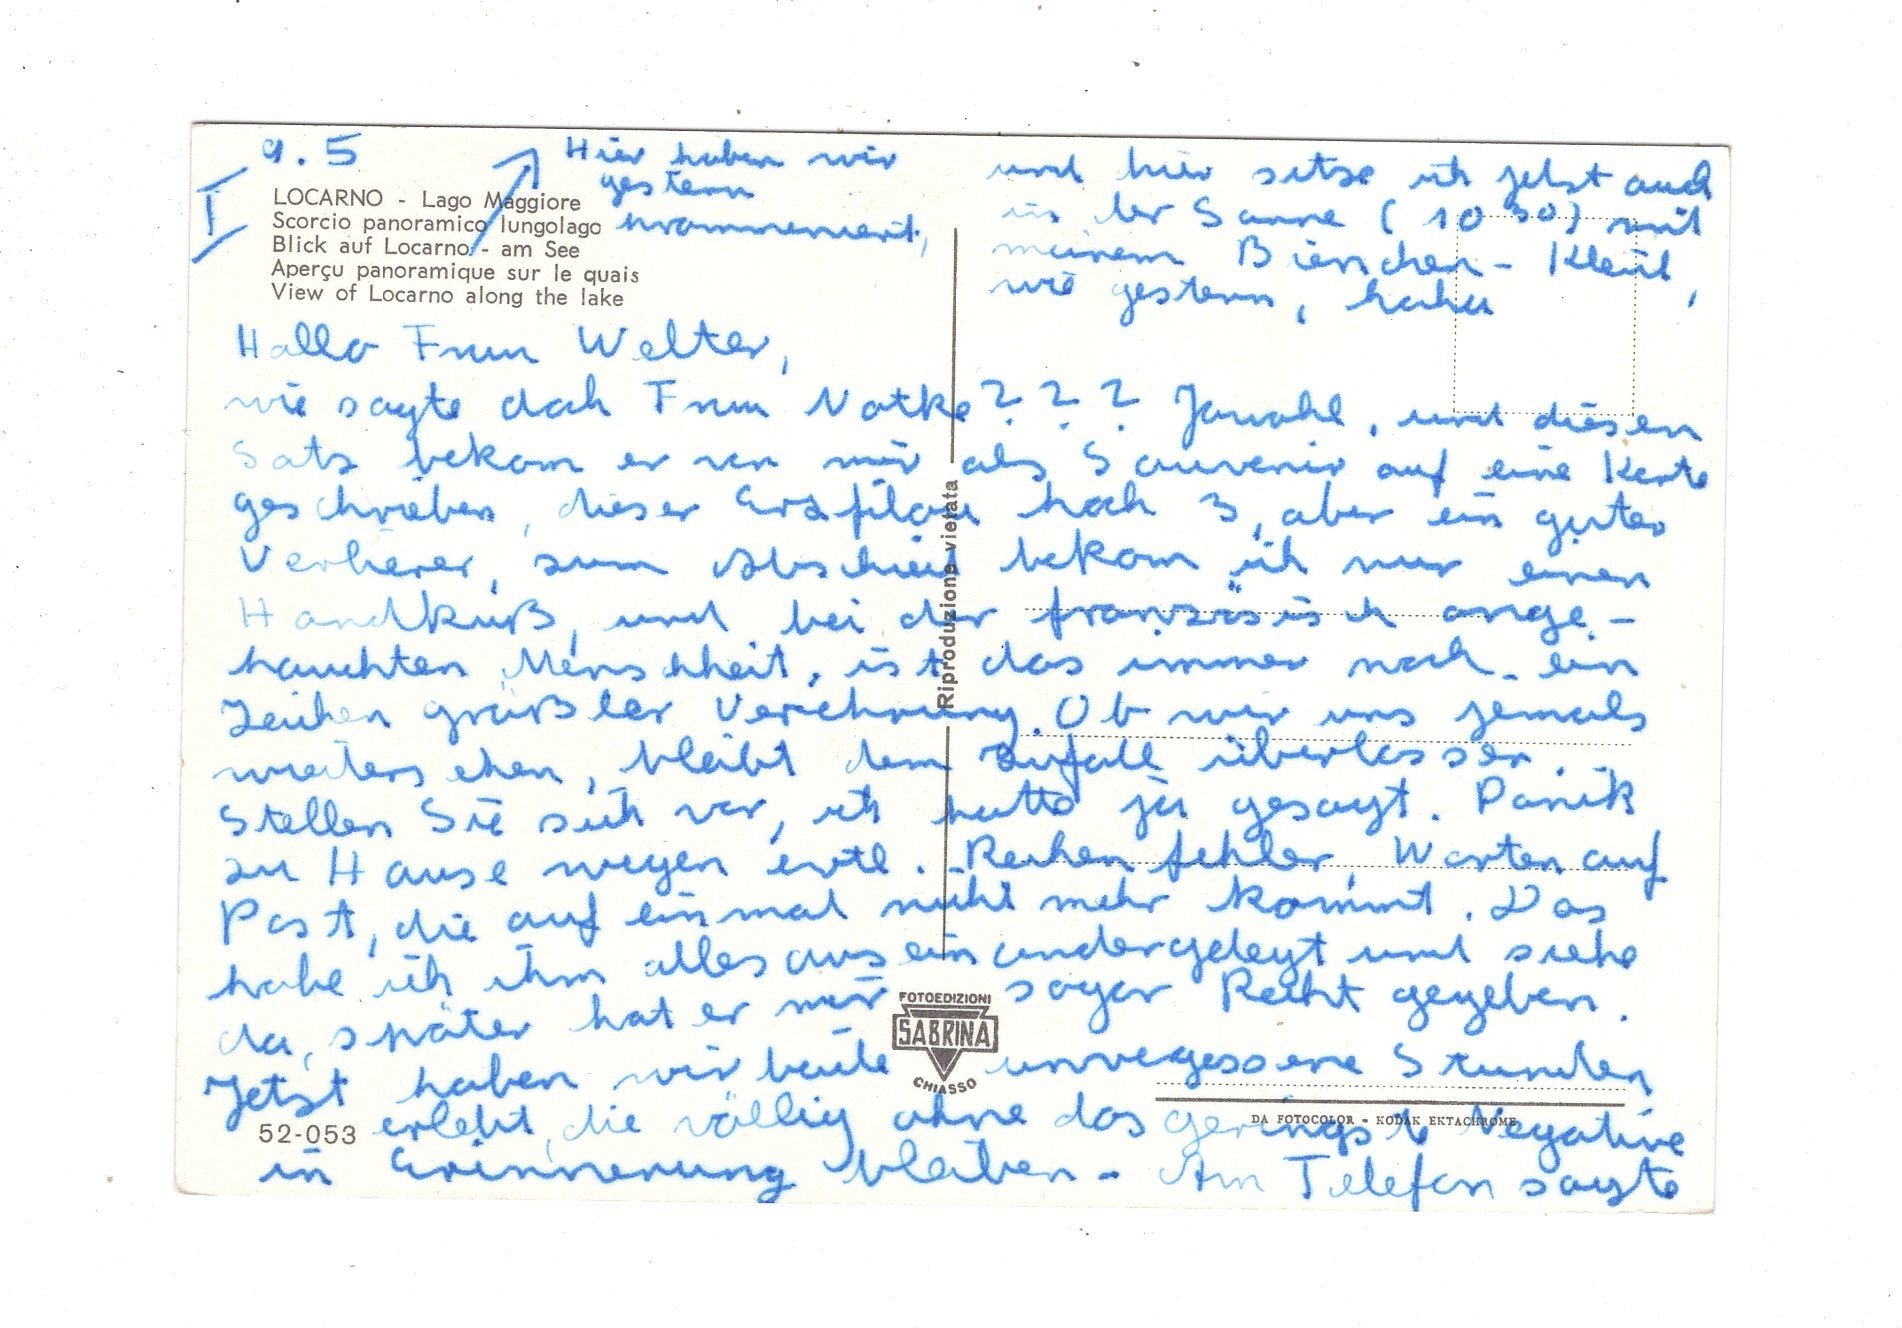 9.5
I
Hier haben wir
gestern
LOCARNO - Lago Maggiore
Scorcio panoramico lungolago
Blick auf Locarno - am See
Aperçu panoramique sur le quais
View of Locarno along the lake
und hier sitze ich jetzt auch
in der Sonne (10 30) mit
meinem Bienchen-Kleid,
wie gestern, haha
Hallo Frau Welter,
wie sagte doch Frau Natke??? Jawohl, und diesen
Satz bekam er von mir als Souvenir auf eine Karte
geschrieben, dieser hoch 3, aber ein guter
Verlierer, zum Abschied bekam ich nur einen
Handkuß, und bei der französisch ange-
hauchten Menschheit, ist das immer noch ein
Zeichen größter Verehrung. Ob wir uns jemals
wiedersehen, bleibt dem Zufall überlassen.
Stellen Sie sich vor, ich hatte ja gesagt. Panik
zu Hause wegen evtl. Rechenfehler, Warten auf
Post, die auf einmal nicht mehr kommt. Das
habe ich ihm alles auseinandergelegt und siehe
da, später hat er mir sogar Recht gegeben.
Jetzt haben wir beide unvergessene Stunden
erlebt, die völlig ohne das geringste Negative
in Erinnerung bleiben - Am Telefon sagte
Riproduzione vietata
FOTOEDIZIONI
SABRINA
CHIASSO
52-053
DA FOTOCOLOR - KODAK EKTACHROME